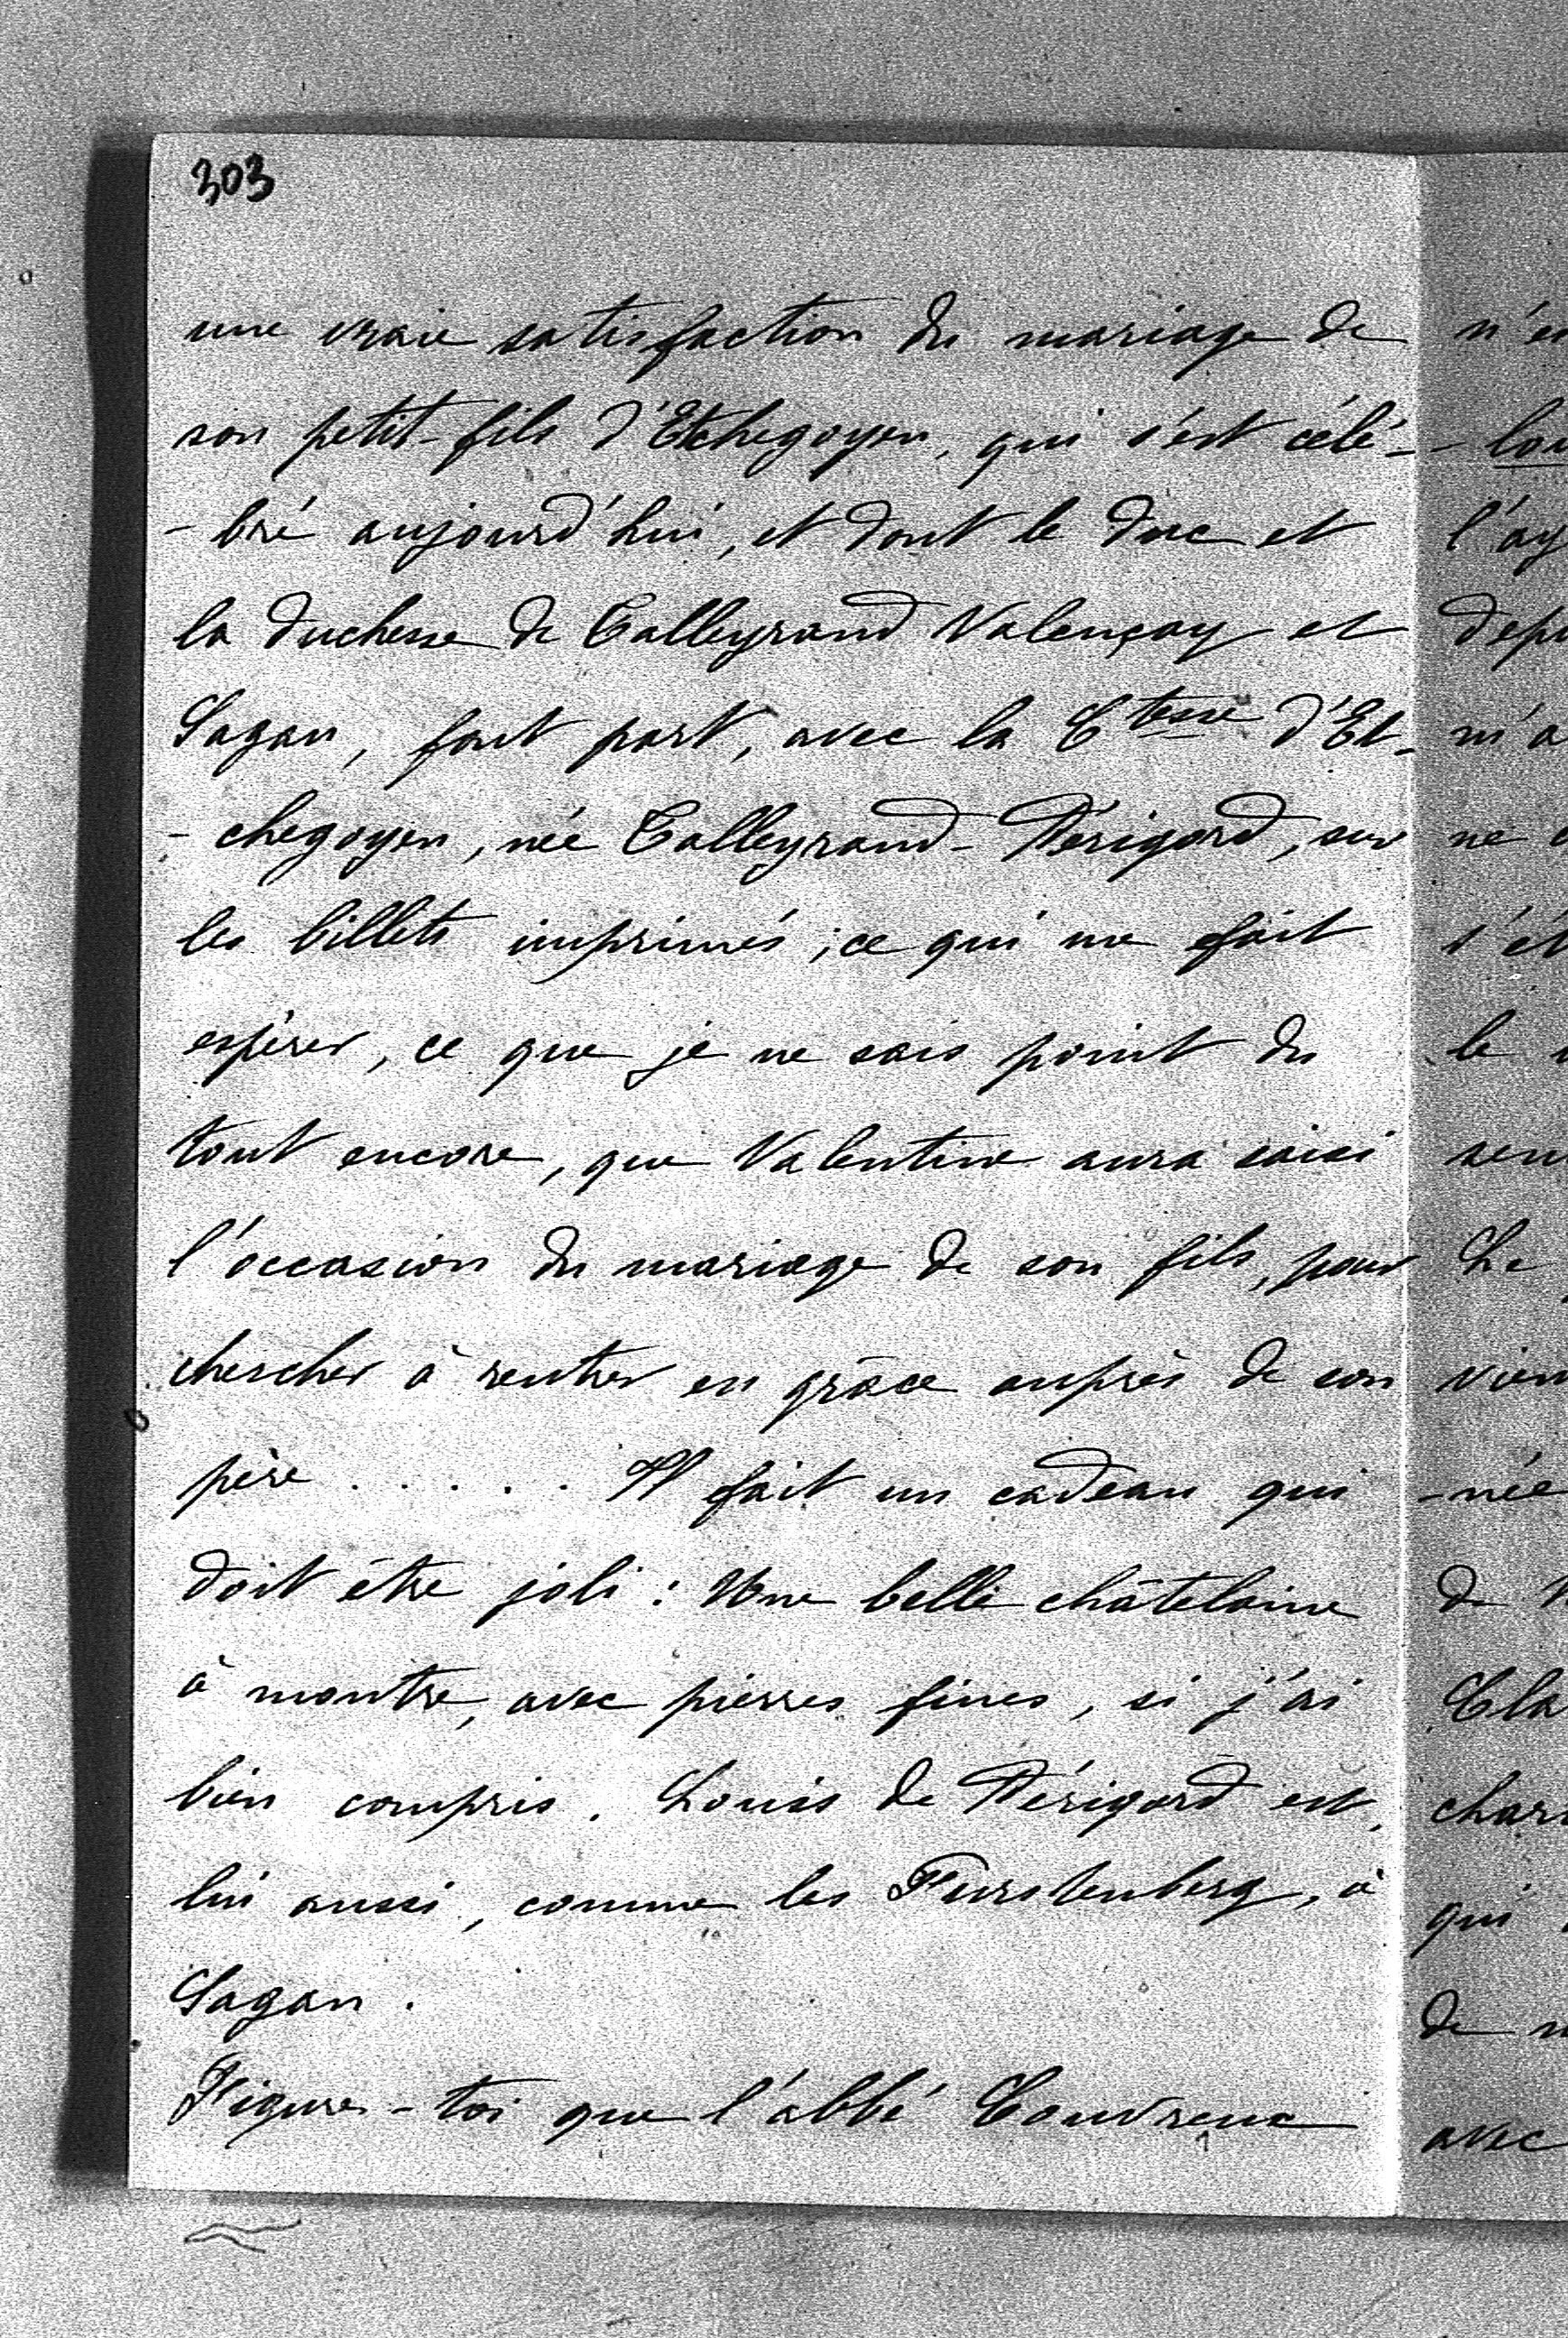 303
une vraie satisfaction du mariage de
son petit-fils d'Etchegoyen, qui s'est célé-
-bré aujourd'hui, et dont le duc et
la duchesse de Talleyrand Valençay et
Sagan, font part, avec la Ctesse d'Et-
-chegoyen, née Talleyrand-Périgord, sur
les billets imprimés ; ce qui me fait
espérer, ce que je ne sais point du
tout encore, que Valentine aura saisi
l'occasion du mariage de son fils, pour
chercher à rentrer en grâce auprès de son
père ..... Il fait un cadeau qui
doit être joli : Une belle châtelaine
à montre, avec pierres fines, si j'ai
bien compris. Louis de Périgord est,
lui aussi, comme les Furstenberg, à
Sagan.
Figures-toi que l'abbé Couvreux
n'e
-lou
l'ay
depu
m'a
ne
s'ét
le
sen
Le
vien
-née
de
Cla
char
qui
de
avec